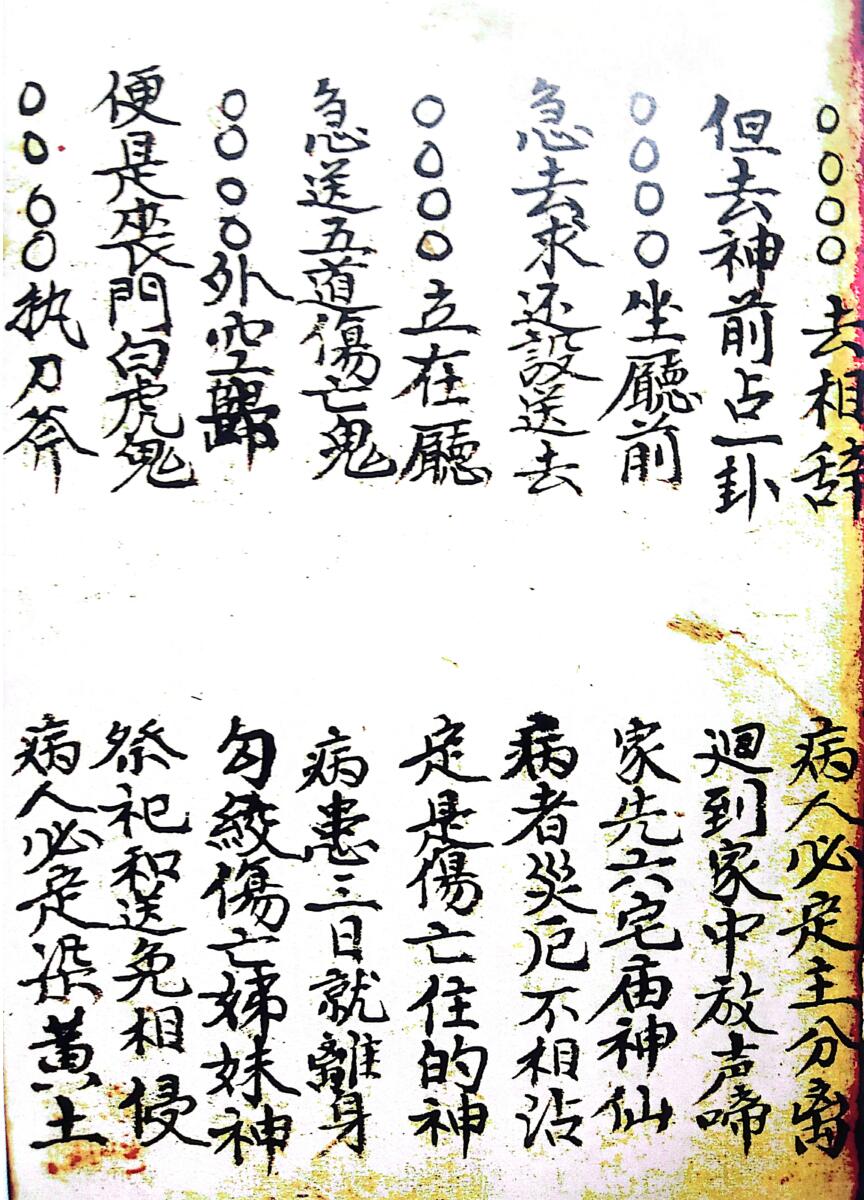 ○○○○去相辞
病人必定主分离
但去神前占一卦
迴到家中放声啼
○○○○坐廳前
家先六宅庙神仙
急去求还設送去
病者災厄不相沾
○○○○立在廳
定是傷亡住的神
急送五道傷亡鬼
病患三日就離身
○○○○外空歸
勾絞傷亡姊妹神
便是喪門白虎鬼
祭祀和送免相侵
○○○○执刀斧
病人必定染黄土